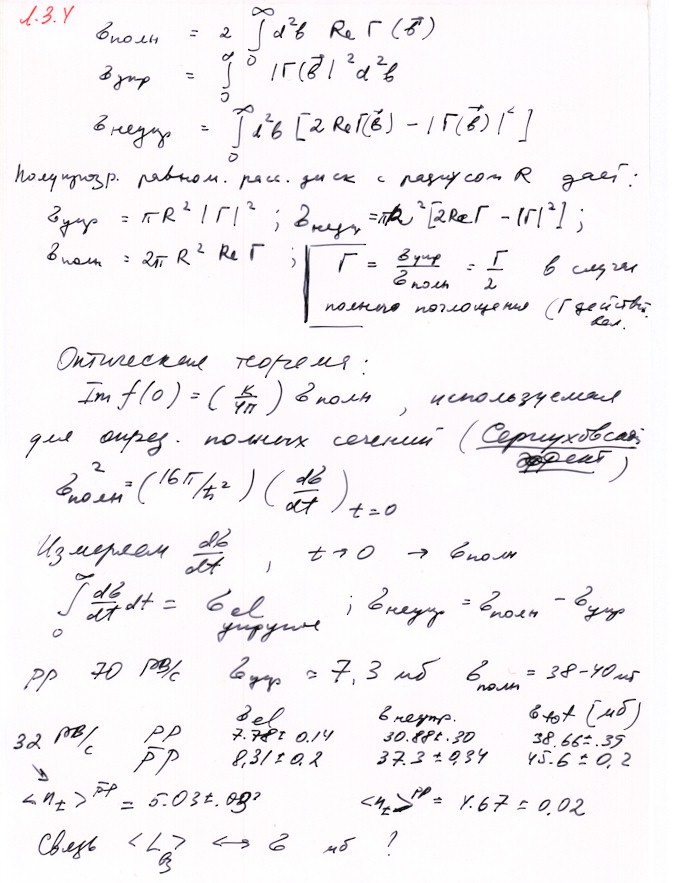 Л.3.4
σполн = 2 ∫₀^∞ d²b Re Γ(b⃗)
σупр = ∫₀^∞ |Γ(b⃗)|² d²b
σнеупр = ∫₀^∞ d²b [2 Re Γ(b⃗) − |Γ(b⃗)|²]
Полупрозр. равном. расс. диск с радиусом R дает:
σупр = πR²|Γ|² ; σнеупр = πR²[2ReΓ − |Γ|²] ;
σполн = 2πR² Re Γ ; Γ = σупр/σполн = Γ/2 в случае
полного поглощения (Γ действ.
вел.
Оптическая теорема:
Im f(0) = (k/4π) σполн , используемая
для опред. полных сечений (Серпуховской
эффект)
σ²полн = (16π/ħ²) (dσ/dt) t=0
Измеряем dσ/dt , t → 0 → σполн
∫₀^∞ dσ/dt dt = σel упругие ; σнеупр = σполн − σупр
pp 70 ГэВ/c σупр = 7,3 мб σполн = 38-40 мб
σel σнеупр. σtot (мб)
32 ГэВ/c pp 7.78 ± 0.14 30.88 ± .30 38.66 ± .35
p̄p 8,31 ± 0.2 37.3 ± 0,34 45.6 ± 0,2
<n_t>^p̄p = 5.03 ± <n_t>^pp = 4.67 ± 0.02
Связь <L> ↔ σ мб ?
вз